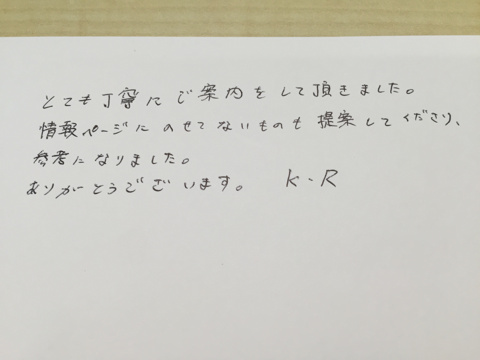 とても丁寧にご案内をして頂きました。
情報ページにのせてないものも提案してくださり、
参考になりました。
ありがとうございます。 K.R